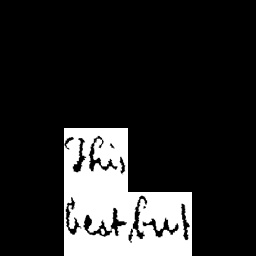 This
best, but